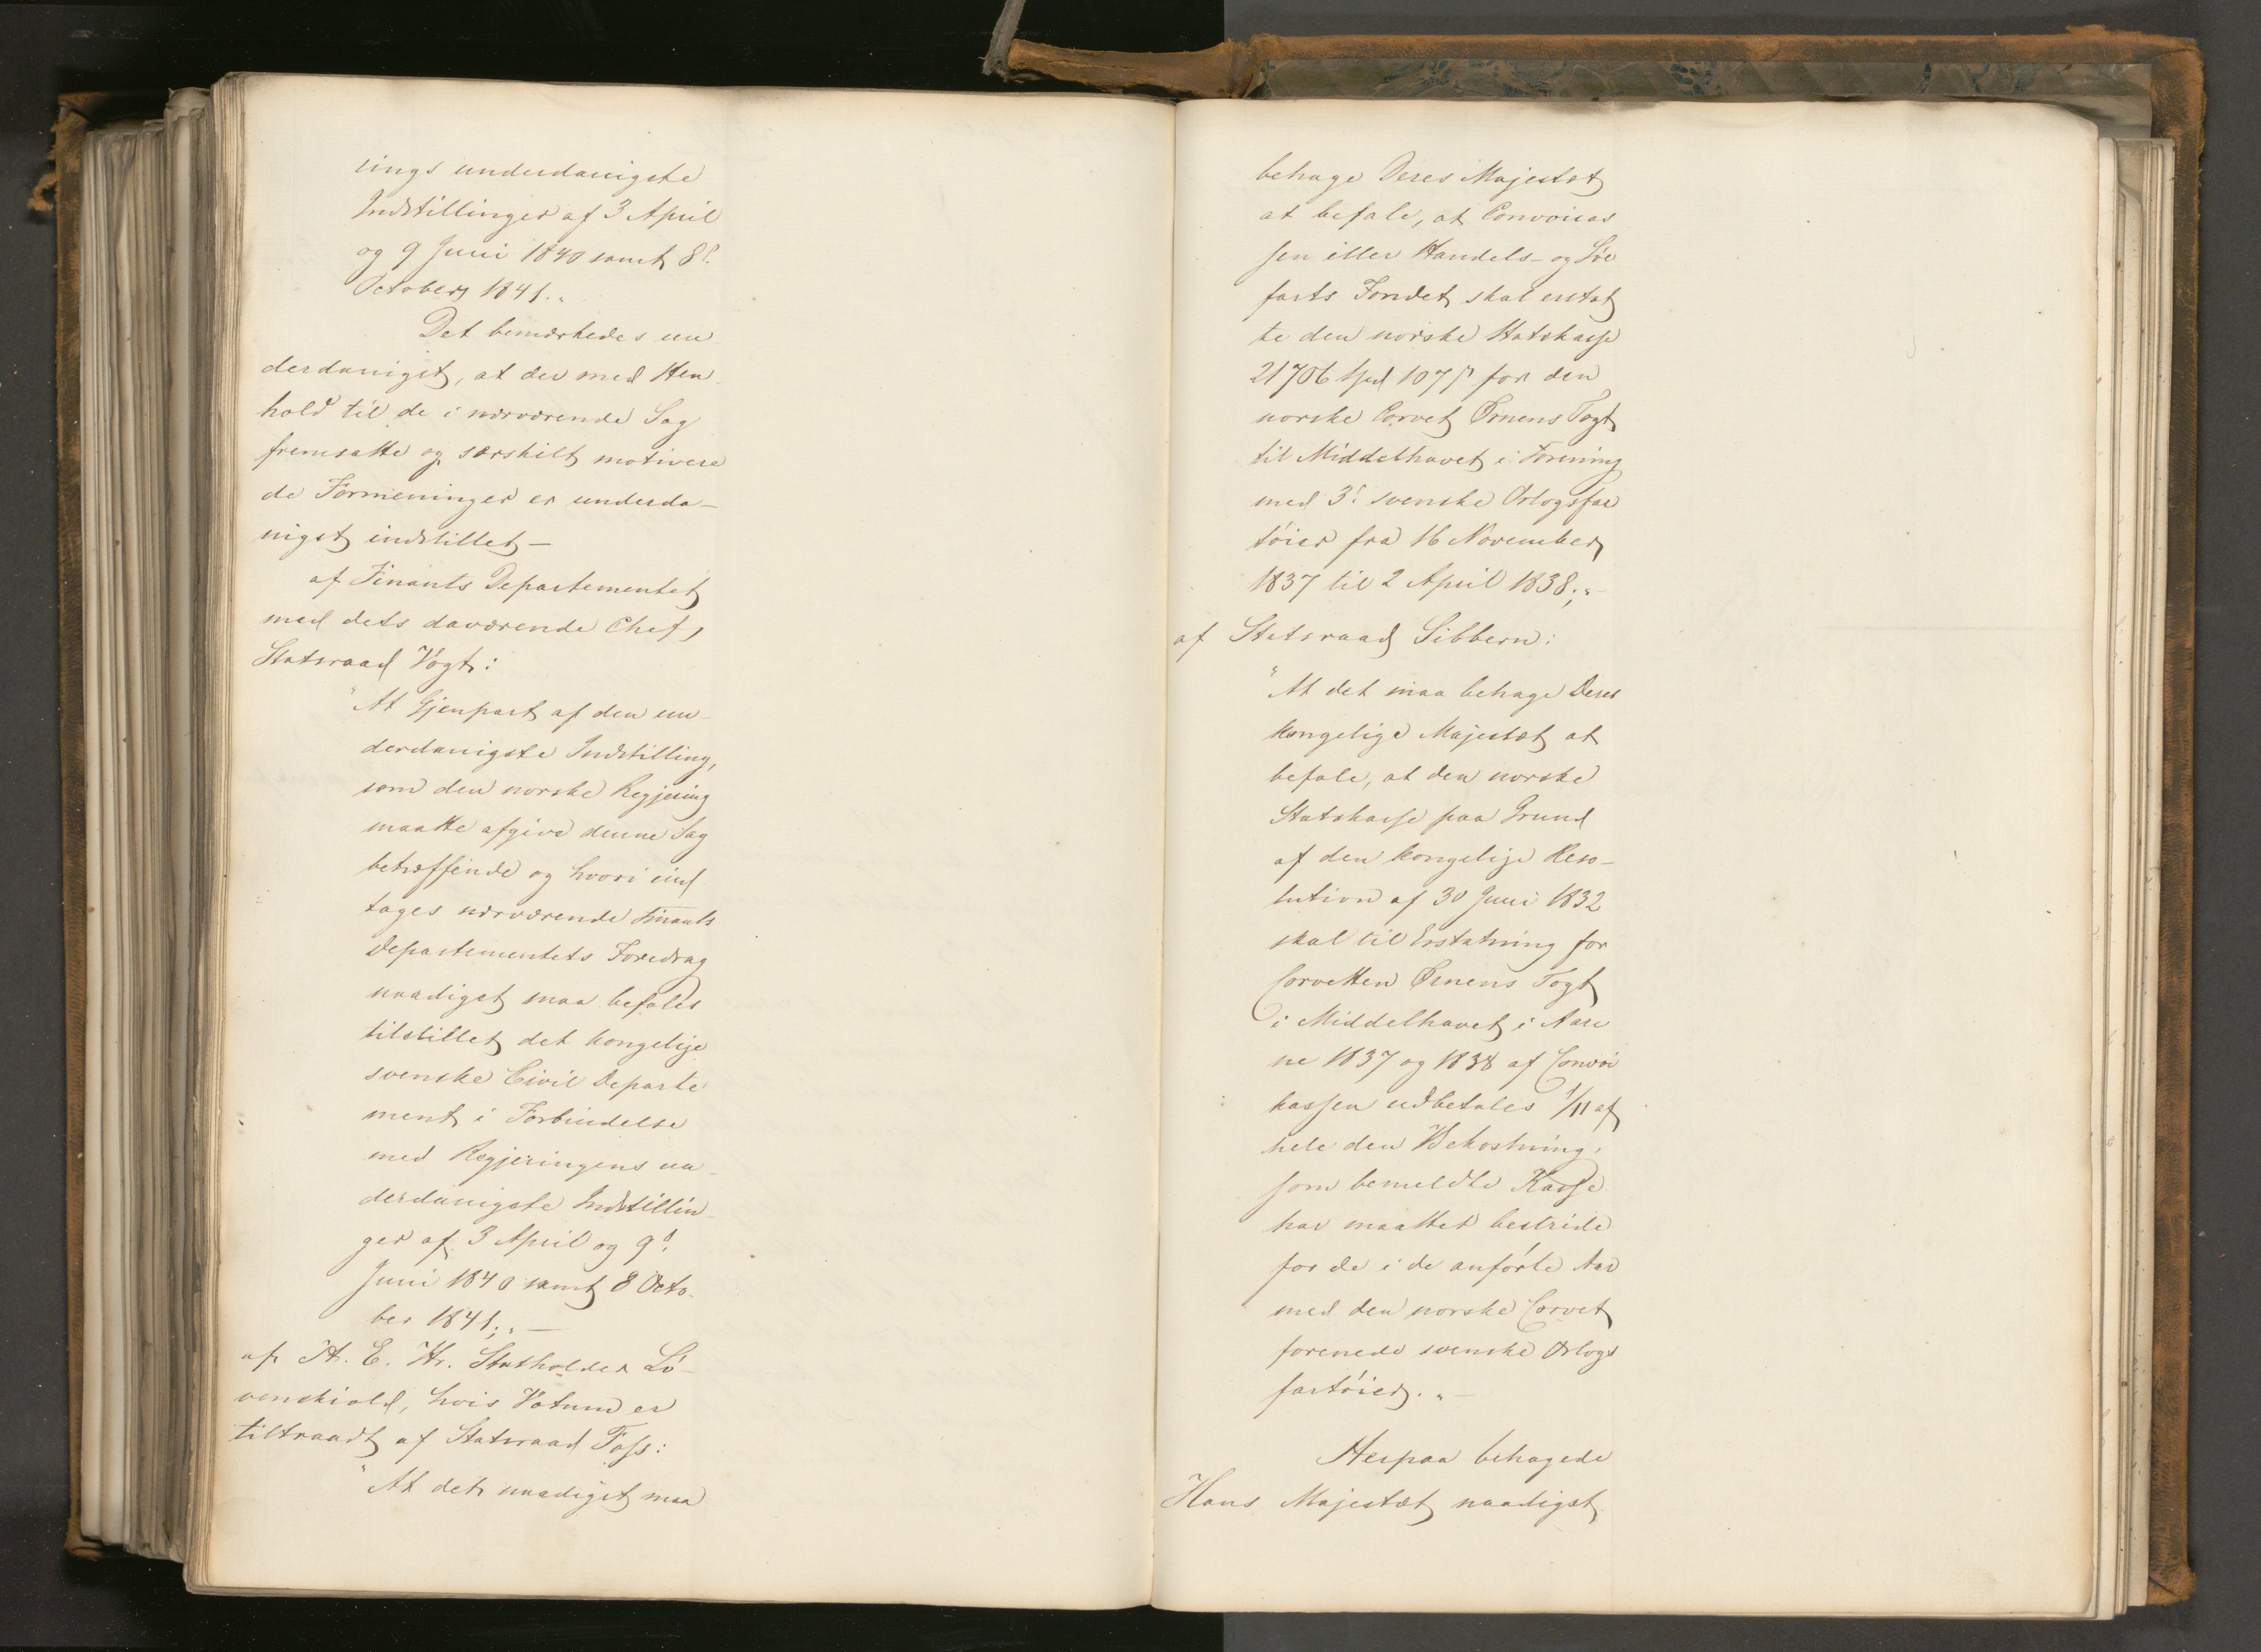 rings underdanigste
Indstillinger af 3 April
og 9 Juni 1840 samt 8.
October 1841."
Det bemærkedes un
derdanigst, at der med Hen
hold til de i nærværende Sag
fremsatte og særskilt motivere
de Formeninger er underda-
nigst indstillet-
af Finants Departementet
med dets daværende Chef,
Statsraad Vogt:
"At Gjenpart af den un-
derdanigste Indstilling,
som den norske Regjering
maatte afgive denne Sag
betræffende og hvori ind
tages nærværende Finants
Departementets Foredrag
naadigst maa befales
tilstillet det kongelige
svenske Civil Departe
ment i Forbindelse
med Regjeringens un-
derdanigste Indstillin-
ger af 3 April og 9.
Juni 1840 samt 8 Octo-
ber 1841;"-
af H. E. Hr. Statholder Lö-
venskiold, hvis Votum er
tiltraadt af Statsraad Fass:
"At det naadigst maa
behage Deres Majestæt
at befale, at Convoicas
sen eller Handels- og Söe
farts Fondet skal erstat
te den norske Statskasse
21706 Spd 107 s for den
norske Corvet Ørnens Togt
til Middelhavet i Forening
med 3. svenske Orlogsfar
töier fra 16 November
1837 til 2 April 1838;"-
af Statsraad Sibbern:
"At det maa behage Deres
kongelige Majestæt at
befale, at den norske
Statskasse paa Grund
af den kongelige Reso-
lution af 30 Juni 1832
skal til Erstatning for
Corvetten Ørnens Togt
i Middelhavet i Aare
ne 1837 og 1838 af Convoi
kassen udbetales 1/11 af
hele den Bekostning,
som bemeldte Kasse
har maattet bestride
for de i de anförte Aar
med den norske Corvet
forenede svenske Orlogs
fartöier."-
Herpaa behagede
Hans Majestæt naadigst